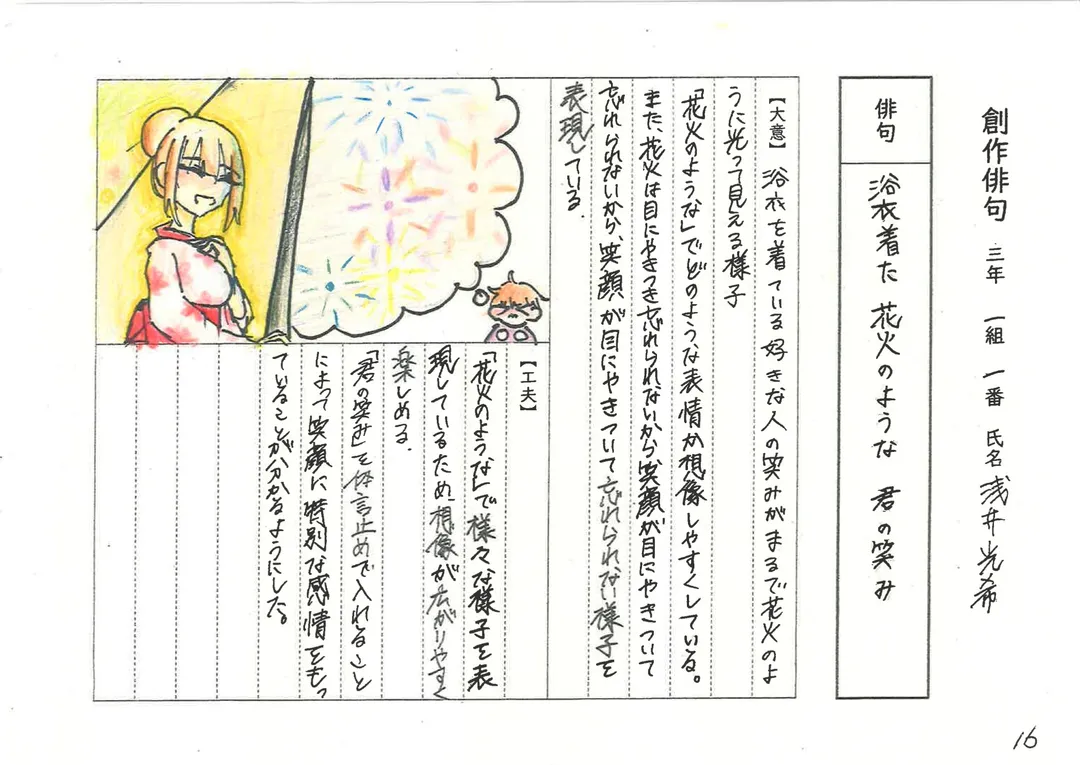 創作俳句 三年 一組 一番 氏名 浅井光希
俳句
浴衣着た 花火のような 君の笑み
【大意】 浴衣を着ている好きな人の笑みがまるで花火のよ
うに光って見える様子
「花火のような」でどのような表情か想像しやすくしている。
また、花火は目にやきつき忘れられないから、笑顔が目にやきついて
忘れられないから、笑顔が目にやきついて忘れられない様子を
表現している.
【工夫】
「花火のような」で様々な様子を表
現しているため、想像が広がりやすく
楽しめる.
「君の笑み」を体言止めで入れること
によって笑顔に特別な感情をもっ
ていることが分かるようにした。
16